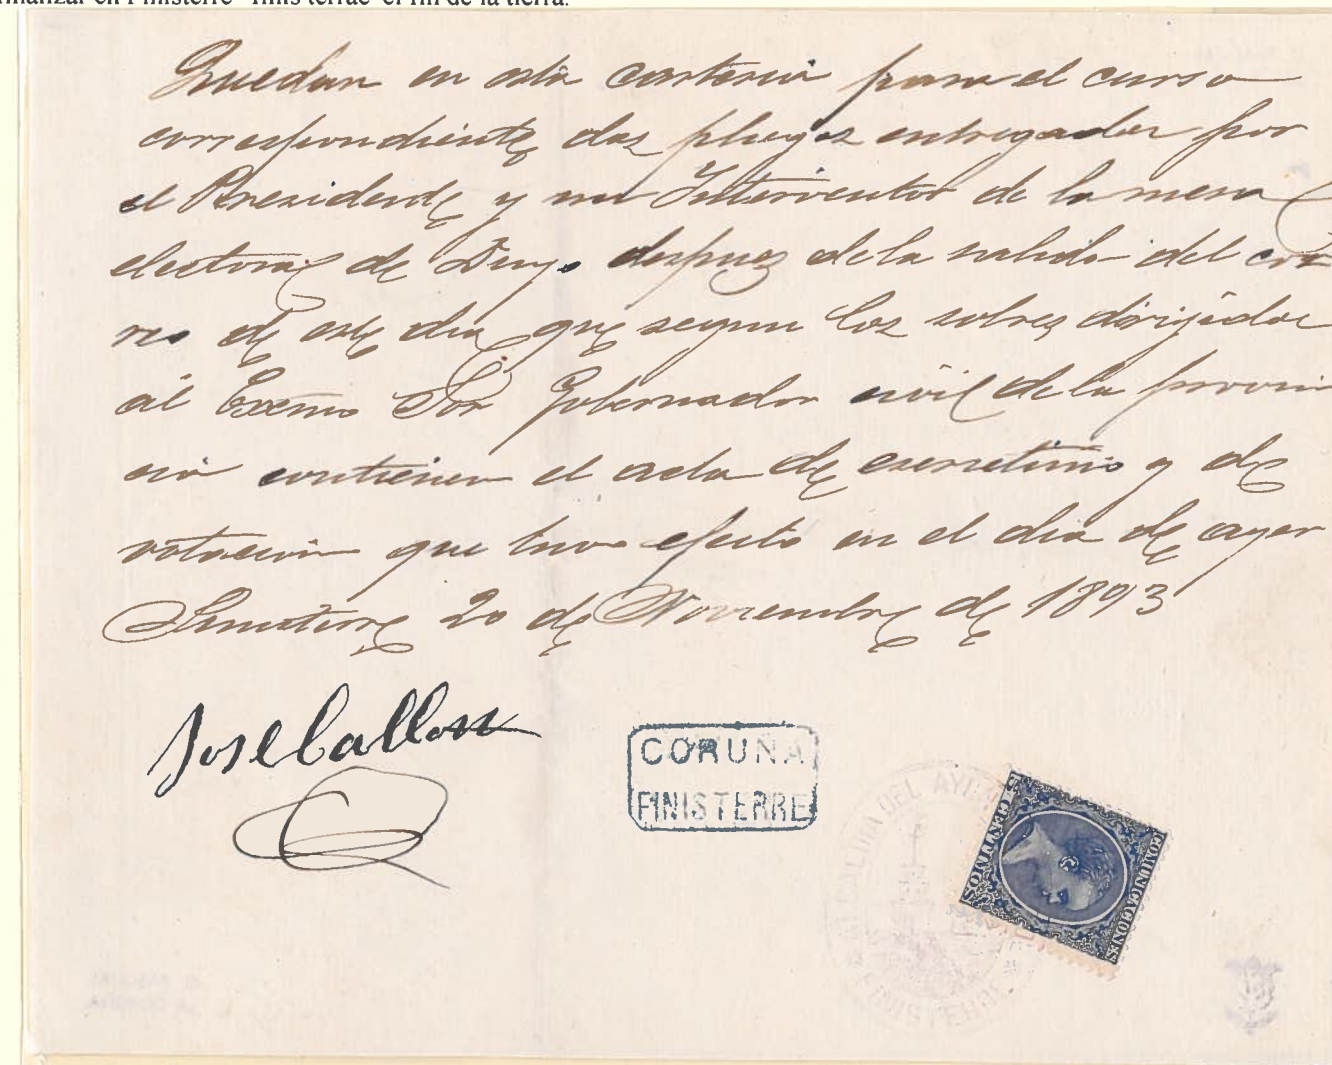 finalizar en Finisterre "finis terrae" el fin de la tierra.
Quedan en esta carteria para el curso
correspondiente dos pliegos entregados por
el Presidente y un Interventor de la mesa
electoral de Duyo despues de la salida del cor
reo de este dia que segun los sobres dirigidos
al Exsmo Sor Gobernador civil de la provin
cia contienen el acta de escrutinio y de
votacion que tuvo efecto en el dia de ayer
Finisterre 20 de Noviembre de 1893
Jose Callon
CORUNA
FINISTERRE
ALCALDIA DEL AYU
FINISTERRE
15 CENTIMOS
COMUNICACIONES